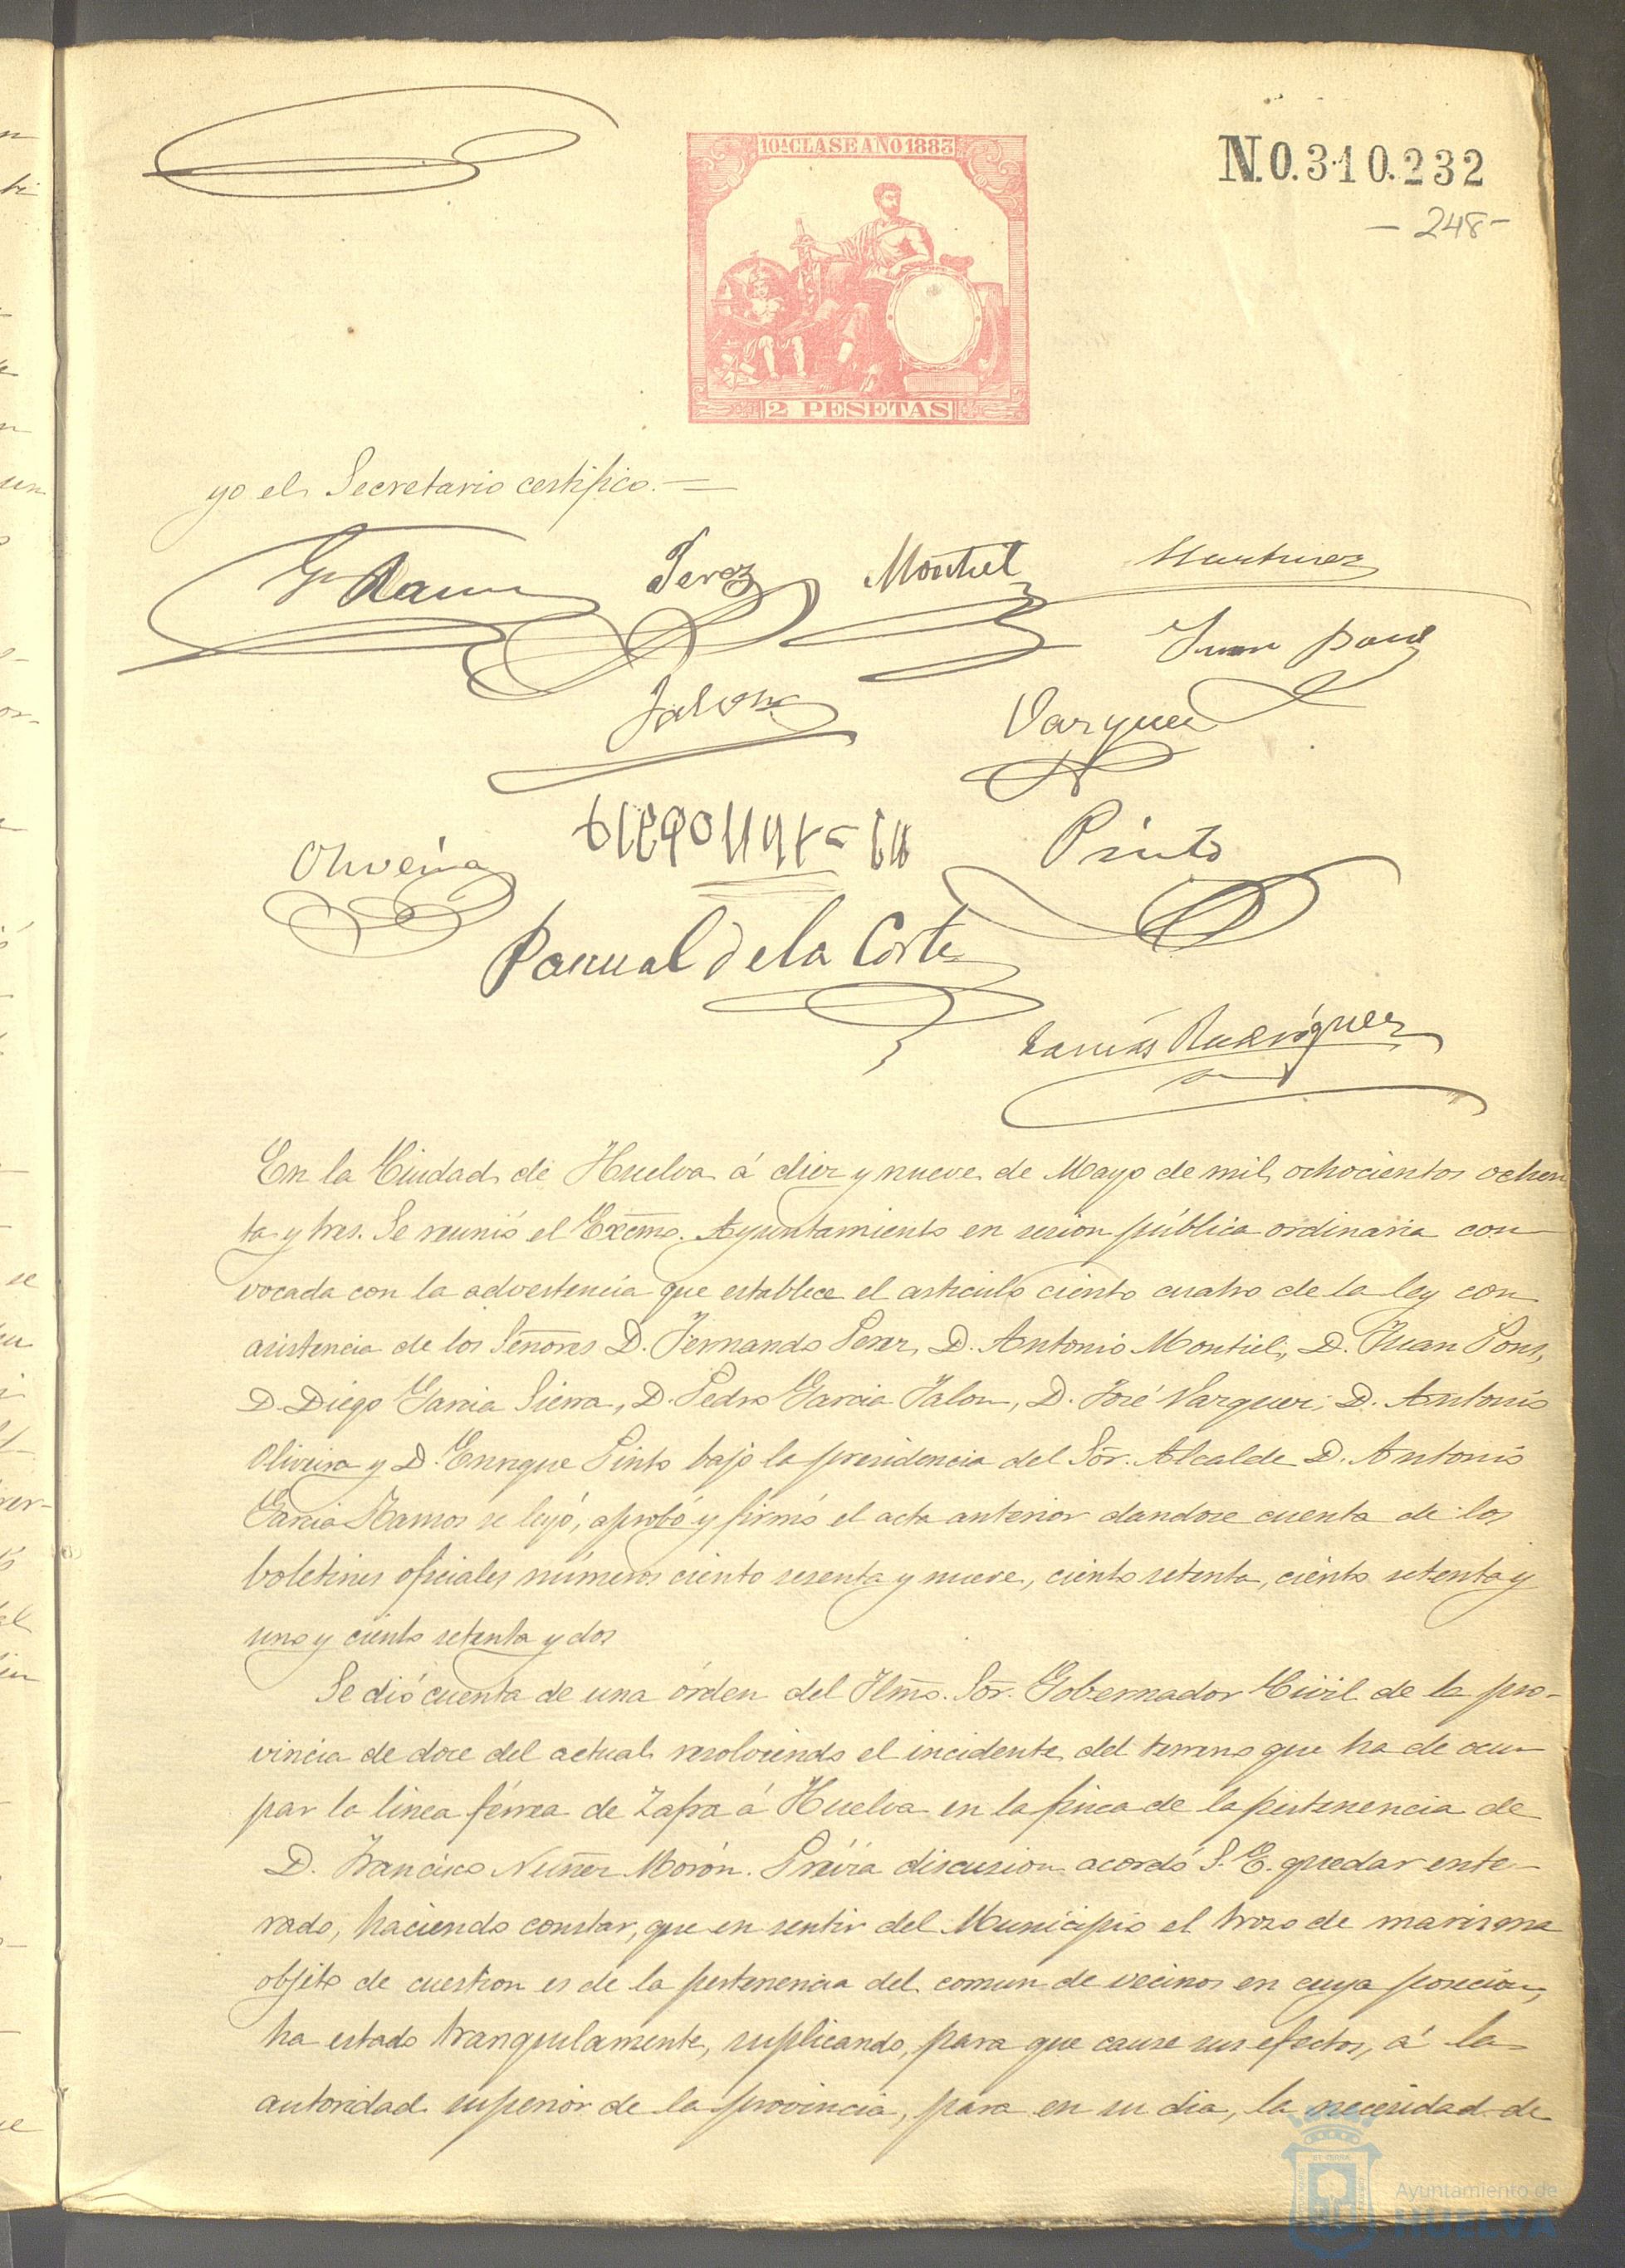 10ª CLASE AÑO 1883
N.0.310.232
- 248 -
2 PESETAS
yo el Secretario certifico. =
Gª Ramos Perez Montiel Martinez
Juan Pons
Jalon Vazquez
Oliveira Pinto
Pascual de la Corte
Tomás Rodríguez
En la Ciudad de Huelva á diez y nueve de Mayo de mil ochocientos ochen
ta y tres. Se reunió el Excmo. Ayuntamiento en sesion pública ordinaria con
vocada con la advertencia que establece el articulo ciento cuatro de la ley con
asistencia de los Señores D. Fernando Perez, D. Antonio Montiel, D. Juan Pons,
D. Diego Garcia Sierra, D. Pedro Garcia Jalon, D. José Vazquez, D. Antonio
Oliveira y D. Enrique Pinto bajo la presidencia del Sor. Alcalde D. Antonio
Garcia Ramos se leyó, aprobó y firmó el acta anterior dandose cuenta de los
boletines oficiales números ciento sesenta y nueve, ciento setenta, ciento setenta y
uno y ciento setenta y dos
Se dió cuenta de una órden del Ilmo. Sor. Gobernador Civil de la pro-
vincia de doce del actual resolviendo el incidente del terreno que ha de ocu-
par la linea férrea de Zafra á Huelva en la finca de la pertenencia de
D. Francisco Nuñez Morón. Prévia discusion acordó S. E. quedar ente-
rado, haciendo constar, que en sentir del Municipio el trozo de marisma
objeto de cuestion es de la pertenencia del comun de vecinos en cuya posecion
ha estado tranquilamente, suplicando, para que cause sus efectos, á la
autoridad superior de la provincia, para en su dia, la necesidad de
Ayuntamiento de
HUELVA